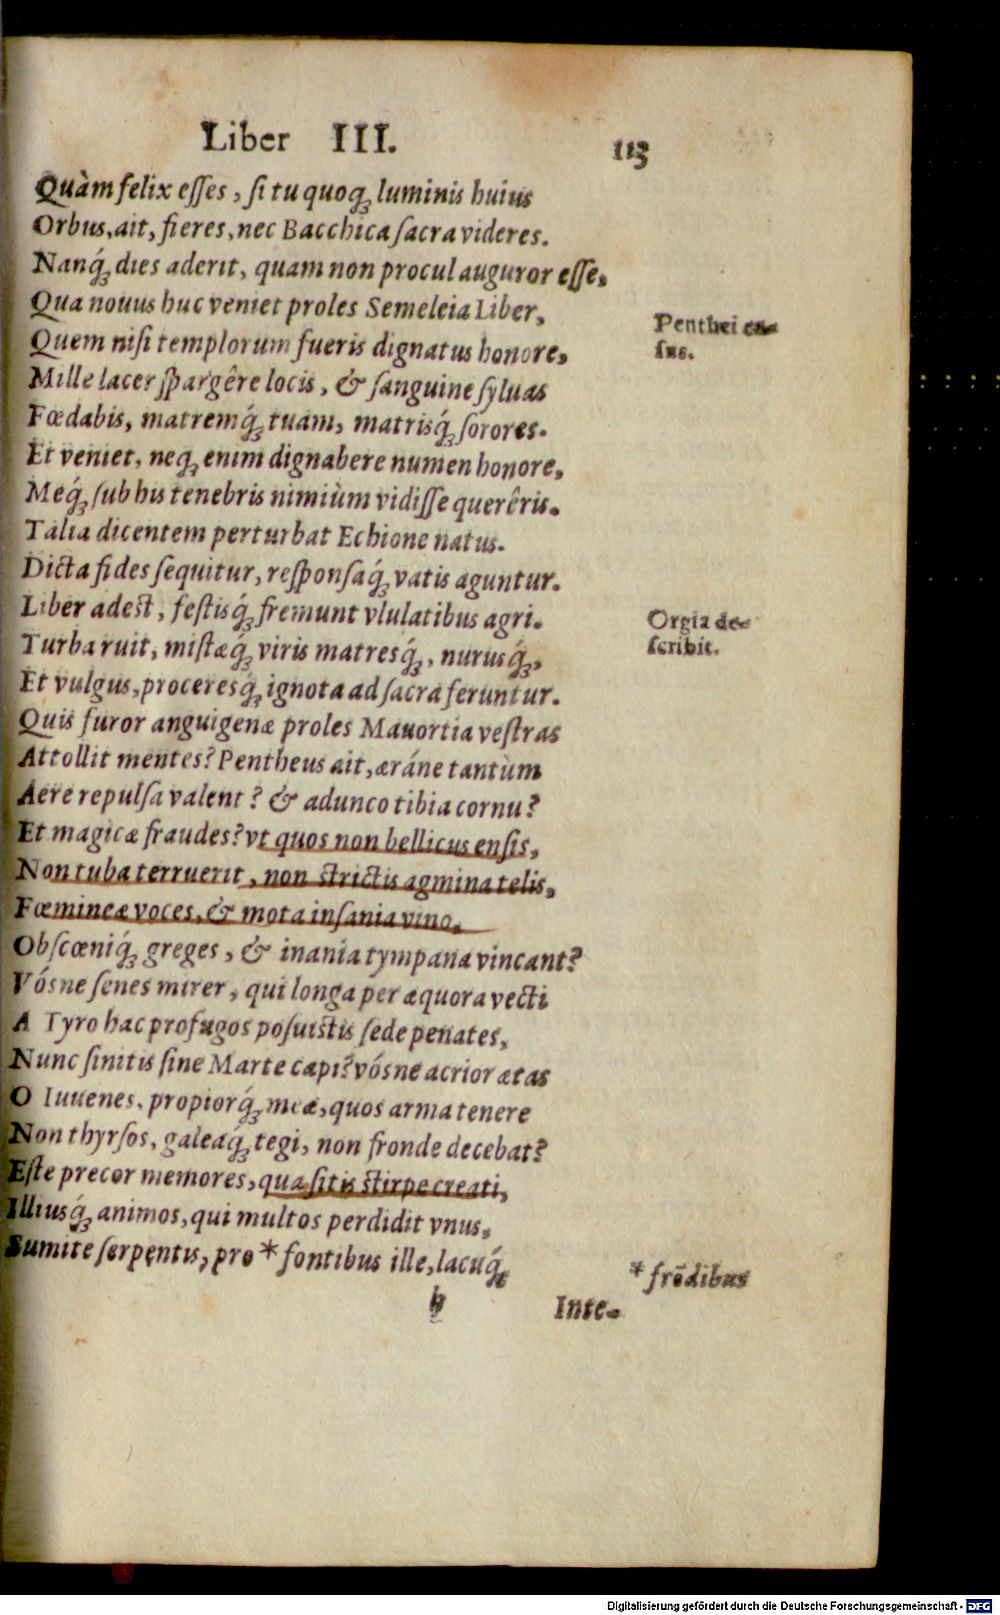 Liber III. 113
Quàm felix eſſes, ſi tu quoq; luminis huius
Orbus, ait, fieres, nec Bacchica ſacra videres.
Nanq́; dies aderit, quam non procul auguror eſſe,
Qua nouus huc veniet proles Semeleia Liber,
Penthei ca-
Quem niſi templorum fueris dignatus honore,
ſus.
Mille lacer ſpargêre locis, & ſanguine ſyluas
Fœdabis, matremq́; tuam, matrisq́; ſorores.
Et veniet, neq; enim dignabere numen honore,
Meq́; ſub his tenebris nimiùm vidiſſe querêris.
Talia dicentem perturbat Echione natus.
Dicta fides ſequitur, reſponſaq́; vatis aguntur.
Liber adest, feſtisq́; fremunt vlulatibus agri.
Orgia de-
Turba ruit, miſtæq́; viris matresq́;, nurusq́;,
ſcribit.
Et vulgus, proceresq́; ignota ad ſacra feruntur.
Quis furor anguigenæ proles Mauortia veſtras
Attollit mentes? Pentheus ait, æráne tantùm
Aere repulſa valent? & adunco tibia cornu?
Et magicæ fraudes? vt quos non bellicus enſis,
Non tuba terruerit, non strictis agmina telis,
Fœmineæ voces, & mota inſania vino,
Obſcœniq́; greges, & inania tympana vincant?
Vósne ſenes mirer, qui longa per æquora vecti
A Tyro hac profugos poſuistis ſede penates,
Nunc ſinitis ſine Marte capi? vósne acrior ætas
O Iuuenes, propiorq́; meæ, quos arma tenere
Non thyrſos, galeaq́; tegi, non fronde decebat?
Eſte precor memores, qua ſitis stirpe creati,
Illiusq́; animos, qui multos perdidit vnus,
Sumite ſerpentis, pro * fontibus ille, lacuq́;
* frōdibus
h Inte-
Digitalisierung gefördert durch die Deutsche Forschungsgemeinschaft - DFG